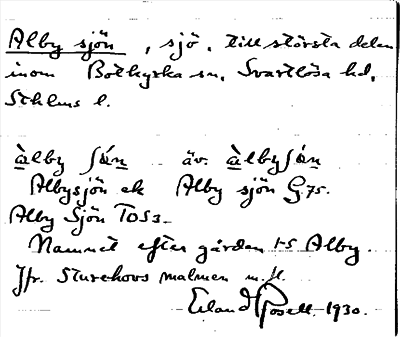 Alby sjön, sjö, till största delen
inom Botkyrka sn, Svartlösa hd,
Sthlms l.
àlby ʃǿn äv. àlbyʃǿn
Albysjön ek Alby sjön G.75.
Alby Sjön TOS3
Namnet efter gården 1-5 Alby.
Jfr. Sturehovs malmen m.fl.
Erland Rosell 1930.